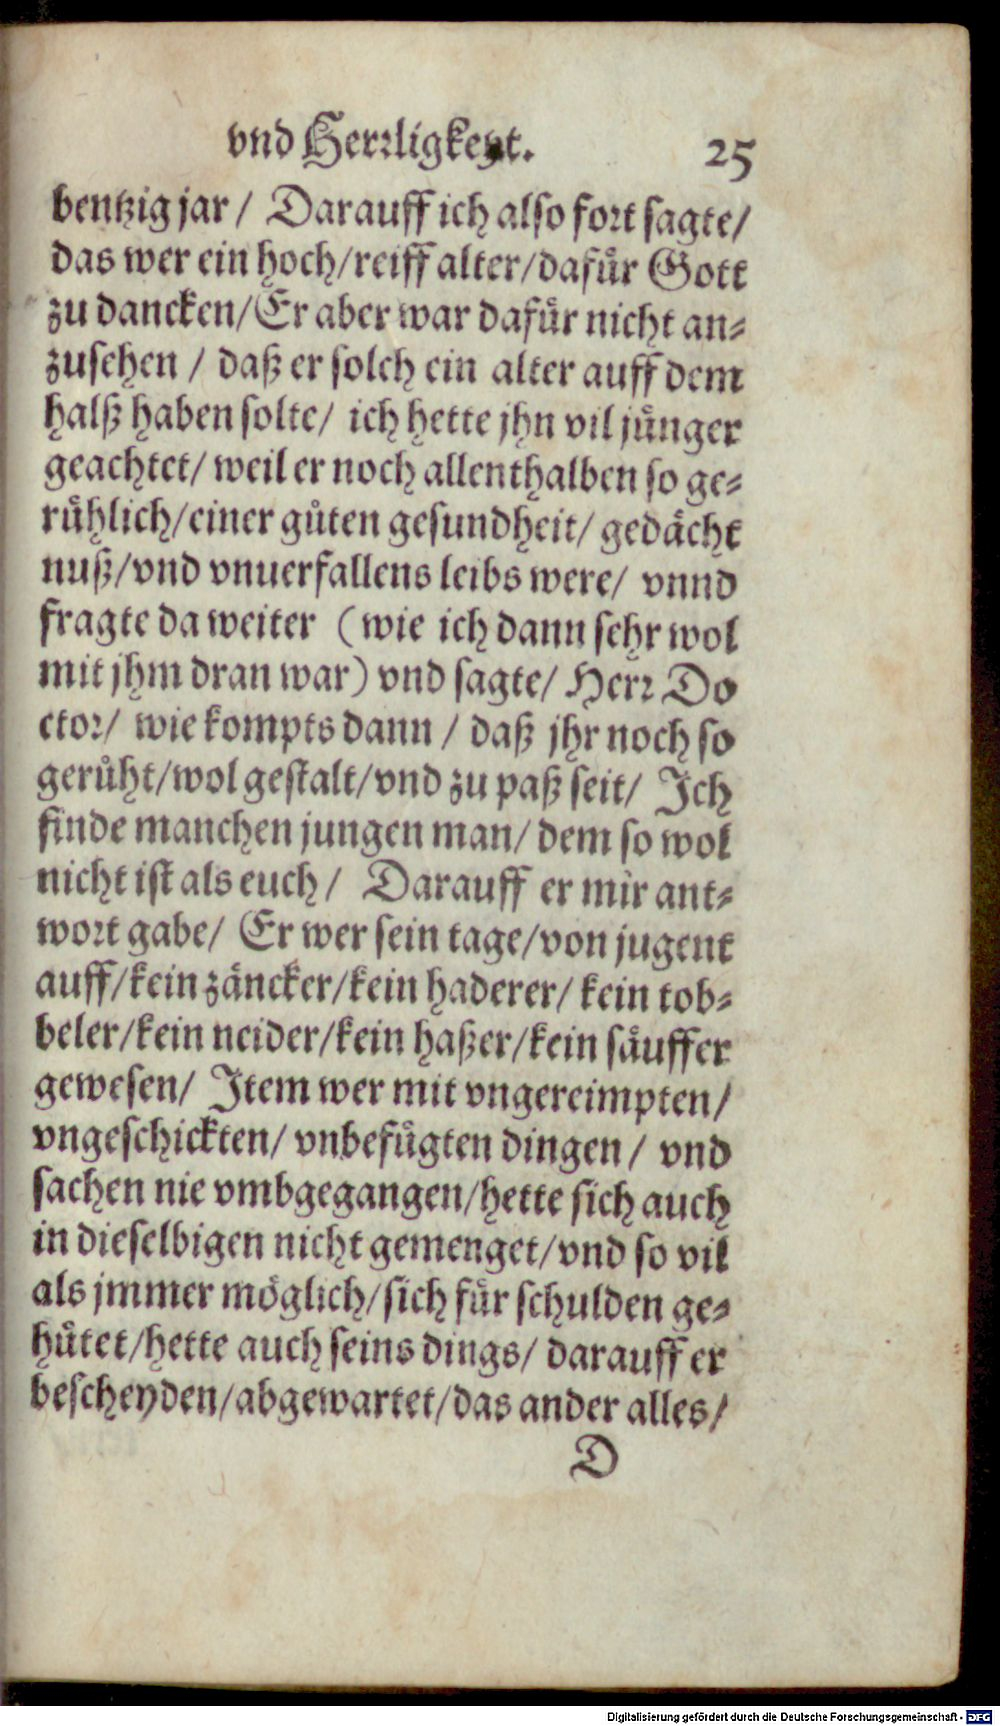 vnd Herꝛligkeyt. 25
bentzig jar / Darauff ich also foꝛt sagte/
das wer ein hoch/reiff alter/dafuͤr Gott
zu dancken/Er aber war dafuͤr nicht an⸗
zusehen / daß er solch ein alter auff dem
halß haben solte/ ich hette jhn vil juͤnger
geachtet/ weil er noch allenthalben so ge⸗
ruͤhlich/einer guͤten gesundheit/ gedaͤcht
nuß/vnd vnuerfallens leibs were/ vnnd
fragte da weiter (wie ich dann sehr wol
mit jhm dran war) vnd sagte/ Herꝛ Do
ctoꝛ/ wie kompts dann / daß jhr noch so
geruͤht/wol gestalt/vnd zu paß seit/ Ich
finde manchen jungen man/ dem so wol
nicht ist als euch / Darauff er mir ant⸗
woꝛt gabe/ Er wer sein tage/von jugent
auff/kein zaͤncker/kein haderer/ kein tob⸗
beler/kein neider/kein haßer/kein saͤuffer
gewesen/ Item wer mit vngereimpten/
vngeschickten/ vnbefuͤgten dingen / vnd
sachen nie vmbgegangen/hette sich auch
in dieselbigen nicht gemenget/vnd so vil
als jmmer moͤglich/sich fuͤr schulden ge⸗
huͤtet/hette auch seins dings/ darauff er
bescheyden/abgewartet/das ander alles/
D
Digitalisierung gefördert durch die Deutsche Forschungsgemeinschaft - DFG